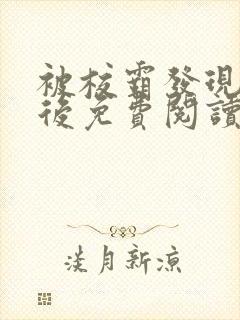 被校霸發現
後免費閱讀
淡月新涼